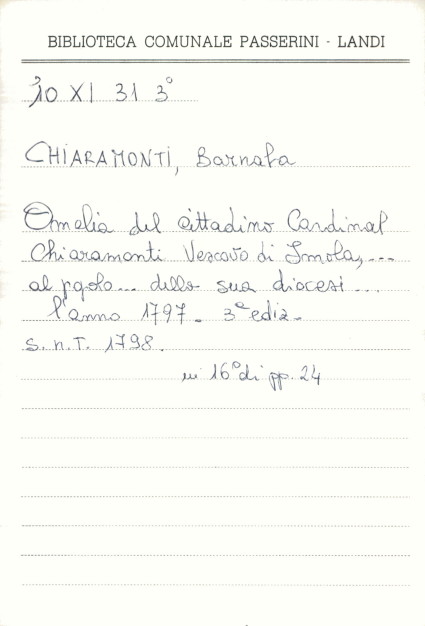 BIBLIOTECA COMUNALE PASSERINI - LANDI
30 XI 31 3°
CHIARAMONTI, Barnaba
Omelia del cittadino Cardinal
Chiaramonti Vescovo di Imola,...
al popolo... della sua diocesi...
l'anno 1797. 3ª ediz.
s.n.T. 1798.
in 16° di pp. 24